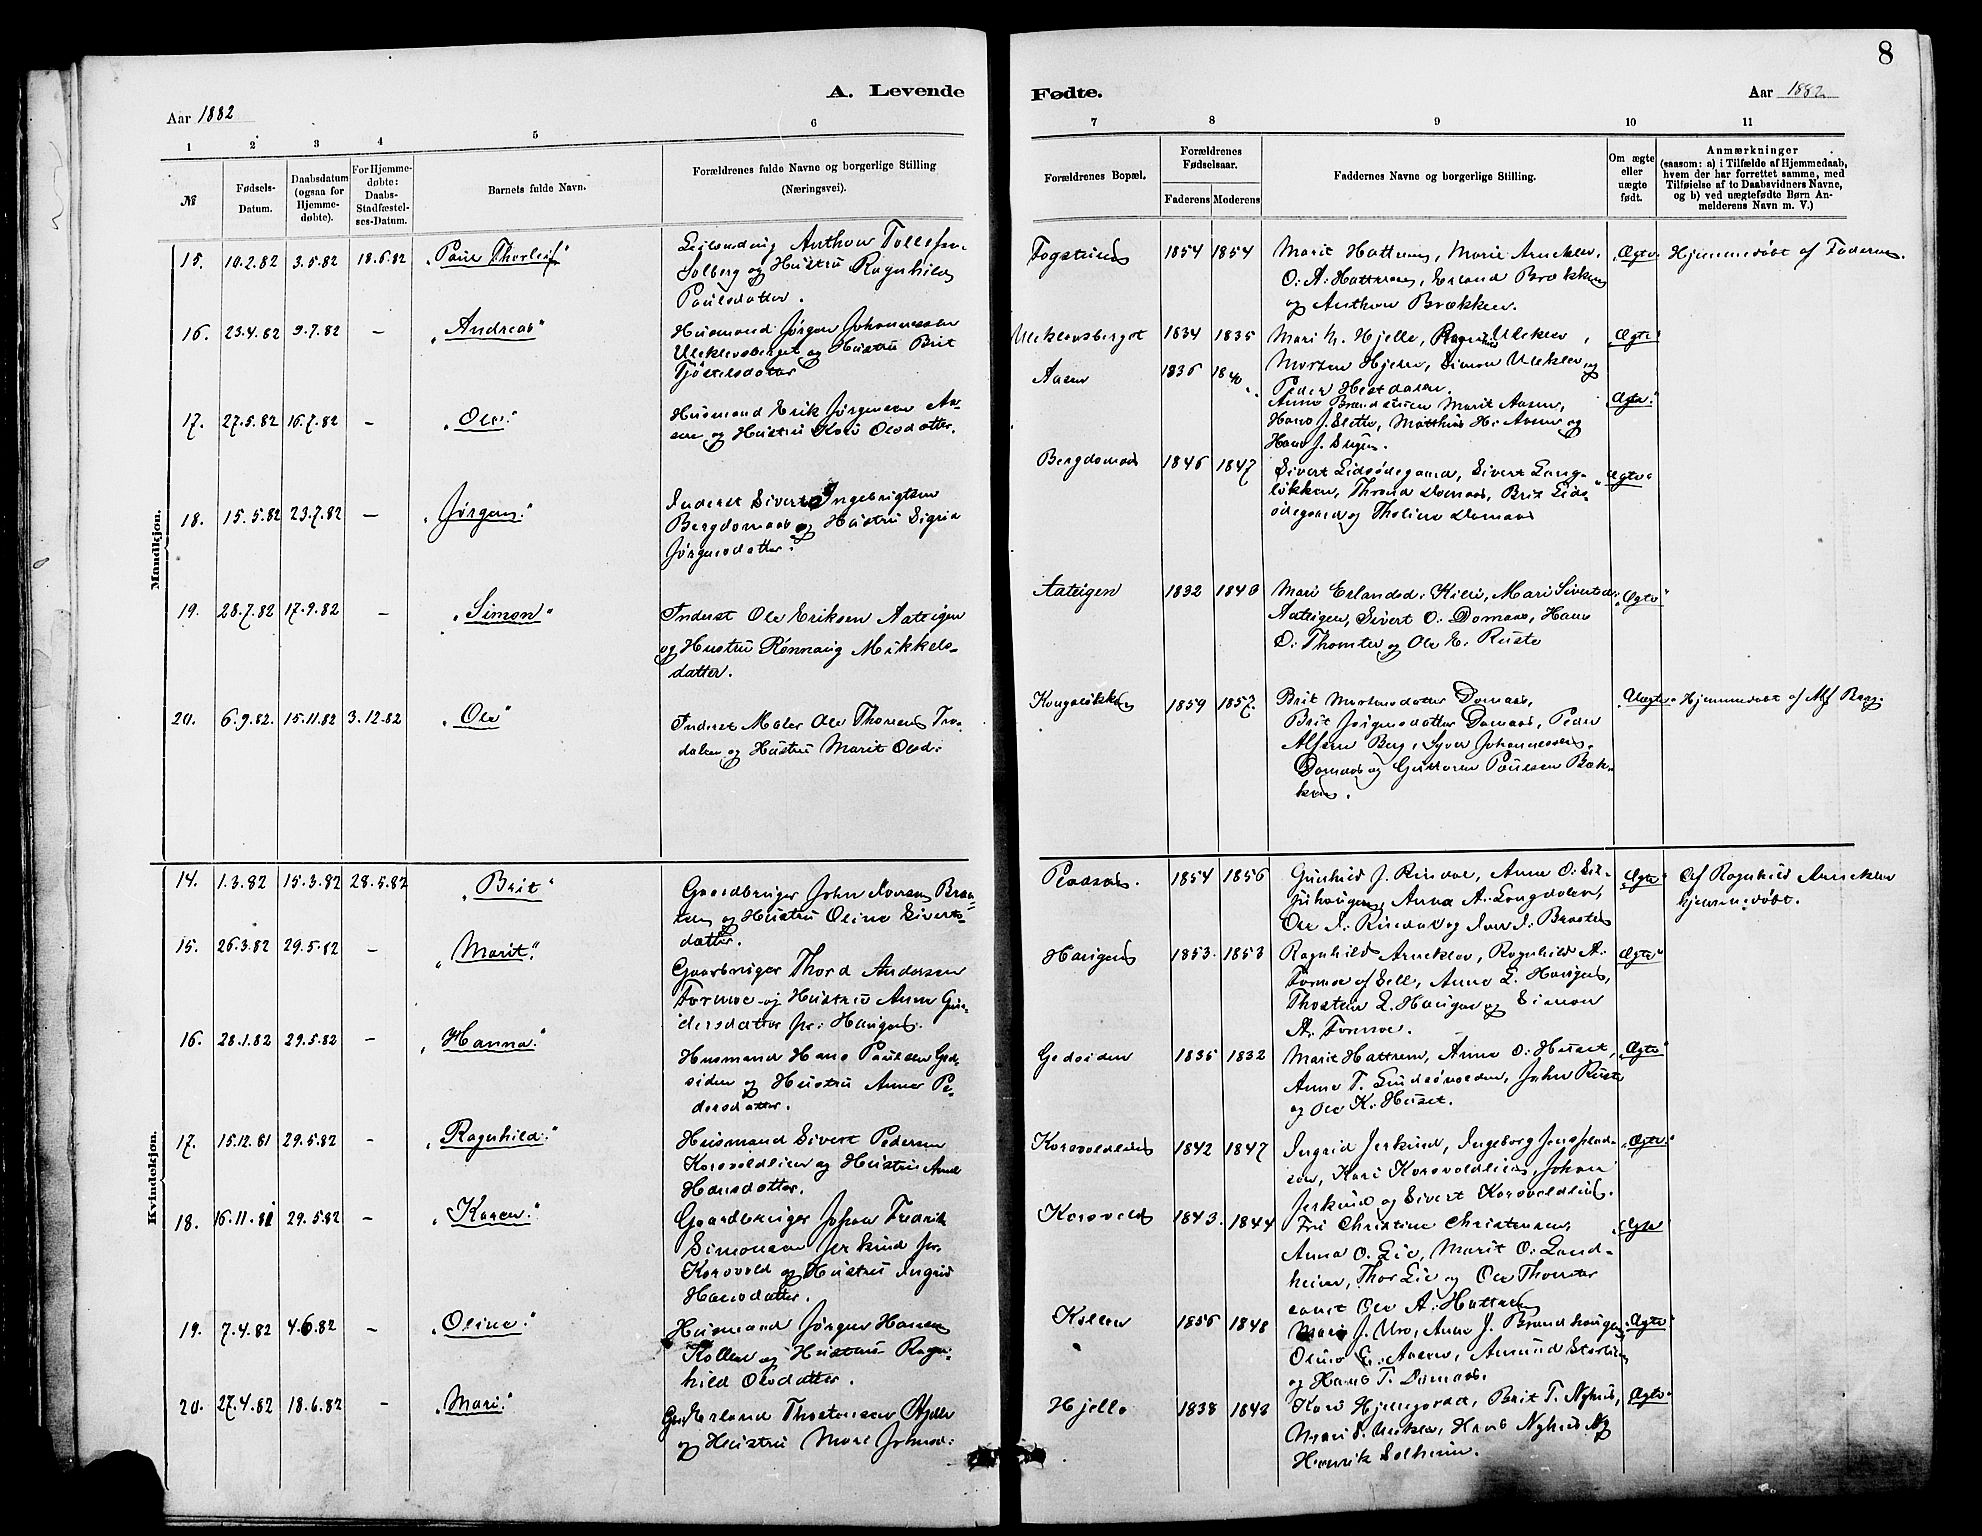 8
A. Levende Fødte.
Aar 1882
Aar 1882
1 2 3 4 5 6 7 8 9 10 11
№
Fødsels-Datum.
Daabsdatum (ogsaa for Hjemmedøbte).
For Hjemmedøbte: Daabs-Stadfæstelses-Datum.
Barnets fulde Navn.
Forældrenes fulde Navne og borgerlige Stilling (Næringsvei).
Forældrenes Bopæl.
Forældrenes Fødselsaar.
Faderens Moderens
Faddernes Navne og borgerlige Stilling.
Om ægte eller uægte født.
Anmærkninger
(saasom: a) i Tilfælde af Hjemmedaab,
hvem der har forrettet samme, med
Tilføielse af to Daabsvidners Navne,
og b) ved uægtefødte Børn An-
melderens Navn m. V.)
Mandkjøn.
15. 10.2.82 3.5.82 18.6.82 "Paul Thorleif"
Anthon Tollefsen
Solberg og Hustru Ragnhild
Paulsdatter.
1854 1854
Marit Hattrem, Marie Arneklev,
O. A. Hattrem, Erland Brækken
og Anthon Brækken.
"Ægte" Hjemmedøbt af Faderen.
16. 23.4.82 9.7.82 – "Andreas"
Husmand Jørgen Johannessen
Uleklevsberget og Hustru Brit
Uleklevsberget 1834 1835
Hjelle, Uleklev,
Morten Hjelle, Simon Uleklev og
Peder
"Ægte"
17. 27.5.82 16.7.82 – "Ole."
Husmand Erik Jørgensen Aa-
sen og Hustru Kari Olsdatter.
Aasen 1836 1840
Anne Brandstuen Marit Aasen,
Hans J. Slette, Matthias H. Aasen og
Hans J.
"Ægte."
18. 15.5.82 23.7.82 – "Jørgen."
Inderst Sivert Ingebrigtsen
Bergdomaas og Hustru Sigrid
Jørgensdatter.
Bergdomaas 1846 1847
Sivert Lidsødegaard, Sivert Lang-
løkken, Thrond Domaas, Brit Lids-
ødegaard og Tholine Domaas
"Ægte"
19. 28.7.82 17.9.82 – "Simon"
Inderst Ole Eriksen Aateigen
og Hustru Rønnaug Mikkels-
datter.
Aateigen 1832 1840
Mari Erlandsd. Kilen, Mari Sivertsd.
Aateigen, Sivert O. Domaas, Hans
O. Thomter og Ole E. Ruste
"Ægte"
20. 6.9.82. 15.11.82 3.12.82 "Ole"
Inderst Maler Ole Thoresen
dalen og Hustru Marit Olsd.
Kongsløkken 1859 1857.
Brit Mortensdatter Domaas,
Brit Jørgensdatter Domaas, Peder
Alfsen Berg, Syver Johannessen
Domaas og Guttorm Paulsen Bæk-
ken.
"Uægte" Hjemmedøbt af Alf Berg
Kvindekjøn.
14. 1.3.82 15.3.82 28.5.82 "Brit"
Gaardbruger John Iversen
og Hustru Oline Siverts-
datter.
1854 1856
Gunhild J. Rindal, Anne O.
Anne A. Langdalen,
Ole J. Rindal og Iver J. Braaten
"Ægte" Af Ragnhild Arneklev
hjemmedøbt.
15. 26.3.82 29.5.82 – "Marit."
Gaardbruger Thord Andersen
Formoe og Hustru Anne Gun-
dersdatter fr. Haugen.
Haugen 1853. 1853
Ragnhild Arneklev, Ragnhild A.
Formoe af Sell, Anne L. Haugen,
Thosten L. Haugen og Simon
A. Formoe.
"Ægte"
16. 28.1.82 29.5.82 – "Hanna."
Husmand Hans Paulsen Ged-
siden og Hustru Anne Pe-
dersdatter.
Gedsiden 1835 1832
Marit Hattrem, Anne O. Huset,
Anne T. John Ruste
og Ole K. Huset.
"Ægte"
17. 15.12.81 29.5.82 – "Ragnhild."
Husmand Sivert Pedersen
Korsvoldlien og Hustru
Hansdatter.
Korsvoldlien 1842 1847
Ingrid Jerkind, Ingeborg
Kari Korsvoldlien, Johan
Jerkind og Sivert Korsvoldlien.
"Ægte"
18. 16.11.81 29.5.82 – "Karen."
Gaardbruger Johan Fredrik
Simonsen Jerkind fr.
Korsvold og Hustru Ingrid
Hansdatter.
Korsvold 1843. 1844
Fru Christine Christensen,
Anna O. Lie, Marit O. Land-
heim, Thor Lie og Ole Thomter
samt Ole A. Hattrem
"Ægte"
19. 7.4.82 4.6.82 – "Oline."
Husmand Jørgen Hansen
Kollen og Hustru Ragn-
hild Olsdatter.
Kollen 1856 1848
Mari J. Uro, Anne J. Brandhaugen,
E. Aasen, Amund Storlien
og Hans T. Domaas.
"Ægte"
20. 27.4.82 18.6.82 – "Mari."
Erland Thostensen Hjelle
og Hustru Mari Johnsd.
Hjelle 1838 1843
Kari Brit T. Nyhus,
Hans Nyhus og
Henrik Solheim.
"Ægte"